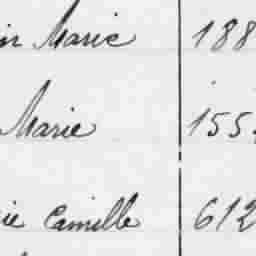 Marie 188
Marie 155
Camille 612